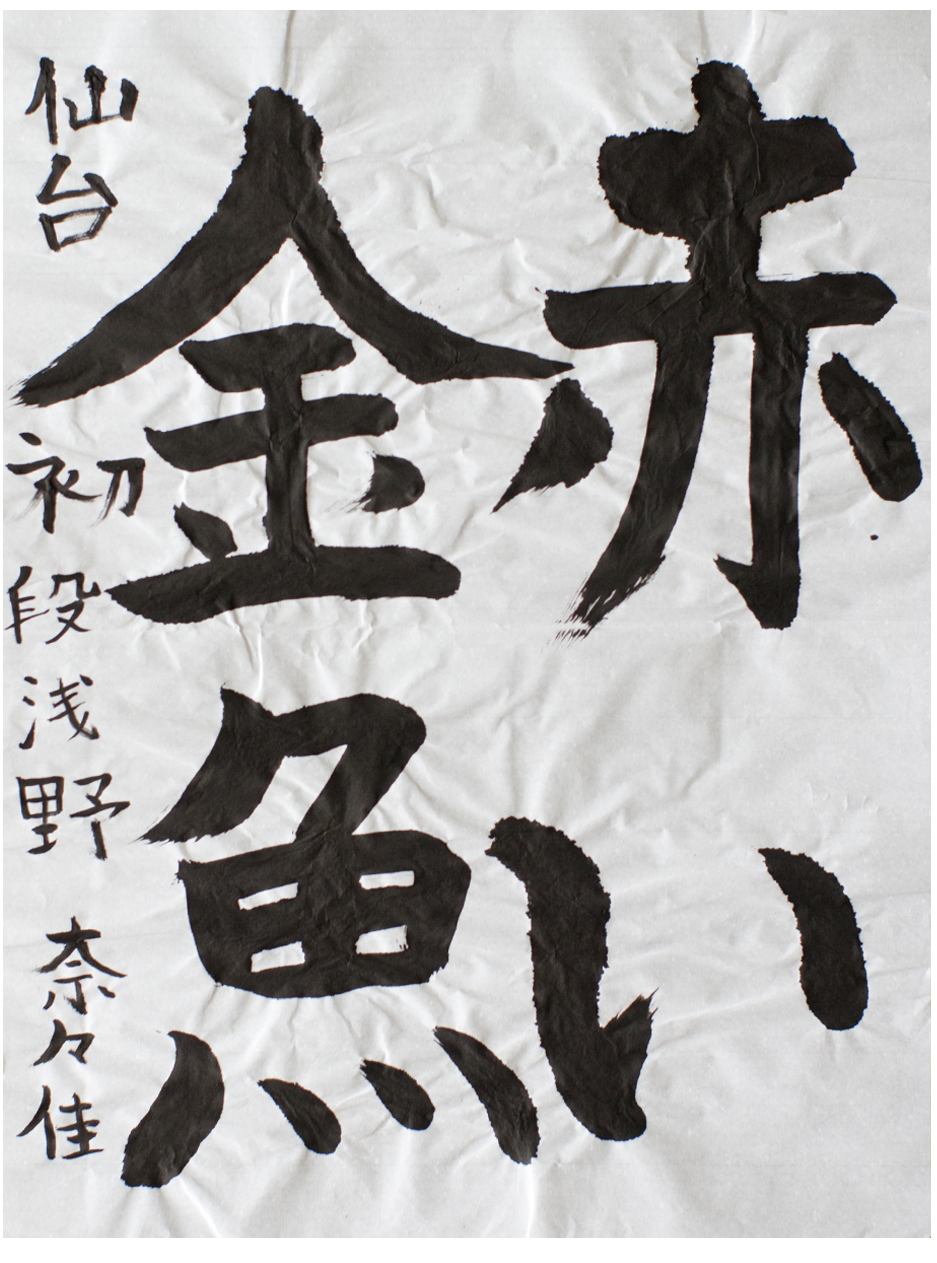 赤い
金魚
仙台 初段 浅野 奈々佳